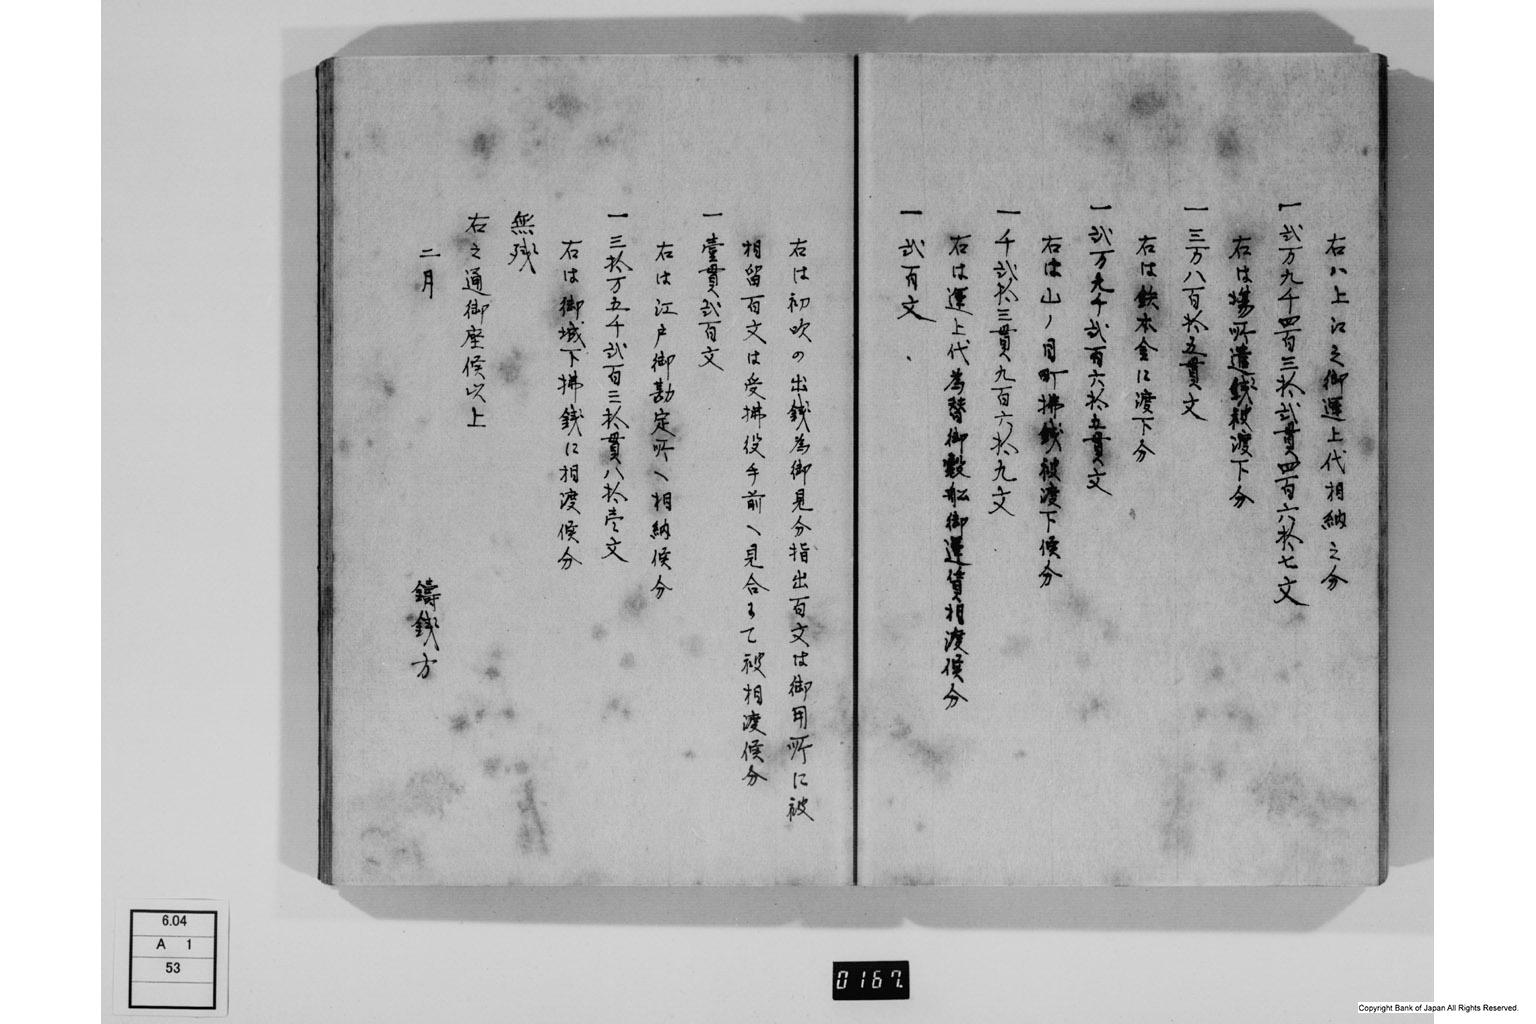 右ハ上江之御運上代相納之分
一 弐万九千四百三拾弐貫四百六拾七文
右は場所遣銭被渡下分
一 三万八百拾五貫文
右は鉄本金に渡下分
一 弐万九千弐百六拾五貫文
右は山ノ目町拂銭被渡下候分
一 千弐拾三貫九百六拾九文
右は運上代為替御穀船御運賃相渡候分
一 弐百文
右は初吹の出銭為御見分指出百文は御用所に被
相留百文は受拂役手前へ見合にて被相渡候分
一 壹貫弐百文
右は江戸御勘定所へ相納候分
一 三拾万五千弐百三拾貫八拾壱文
右は御城下拂銭に相渡候分
無残
右之通御座候以上
二月
鑄銭方
6.04
A 1
53
0167.
Copyright Bank of Japan All Rights Reserved.